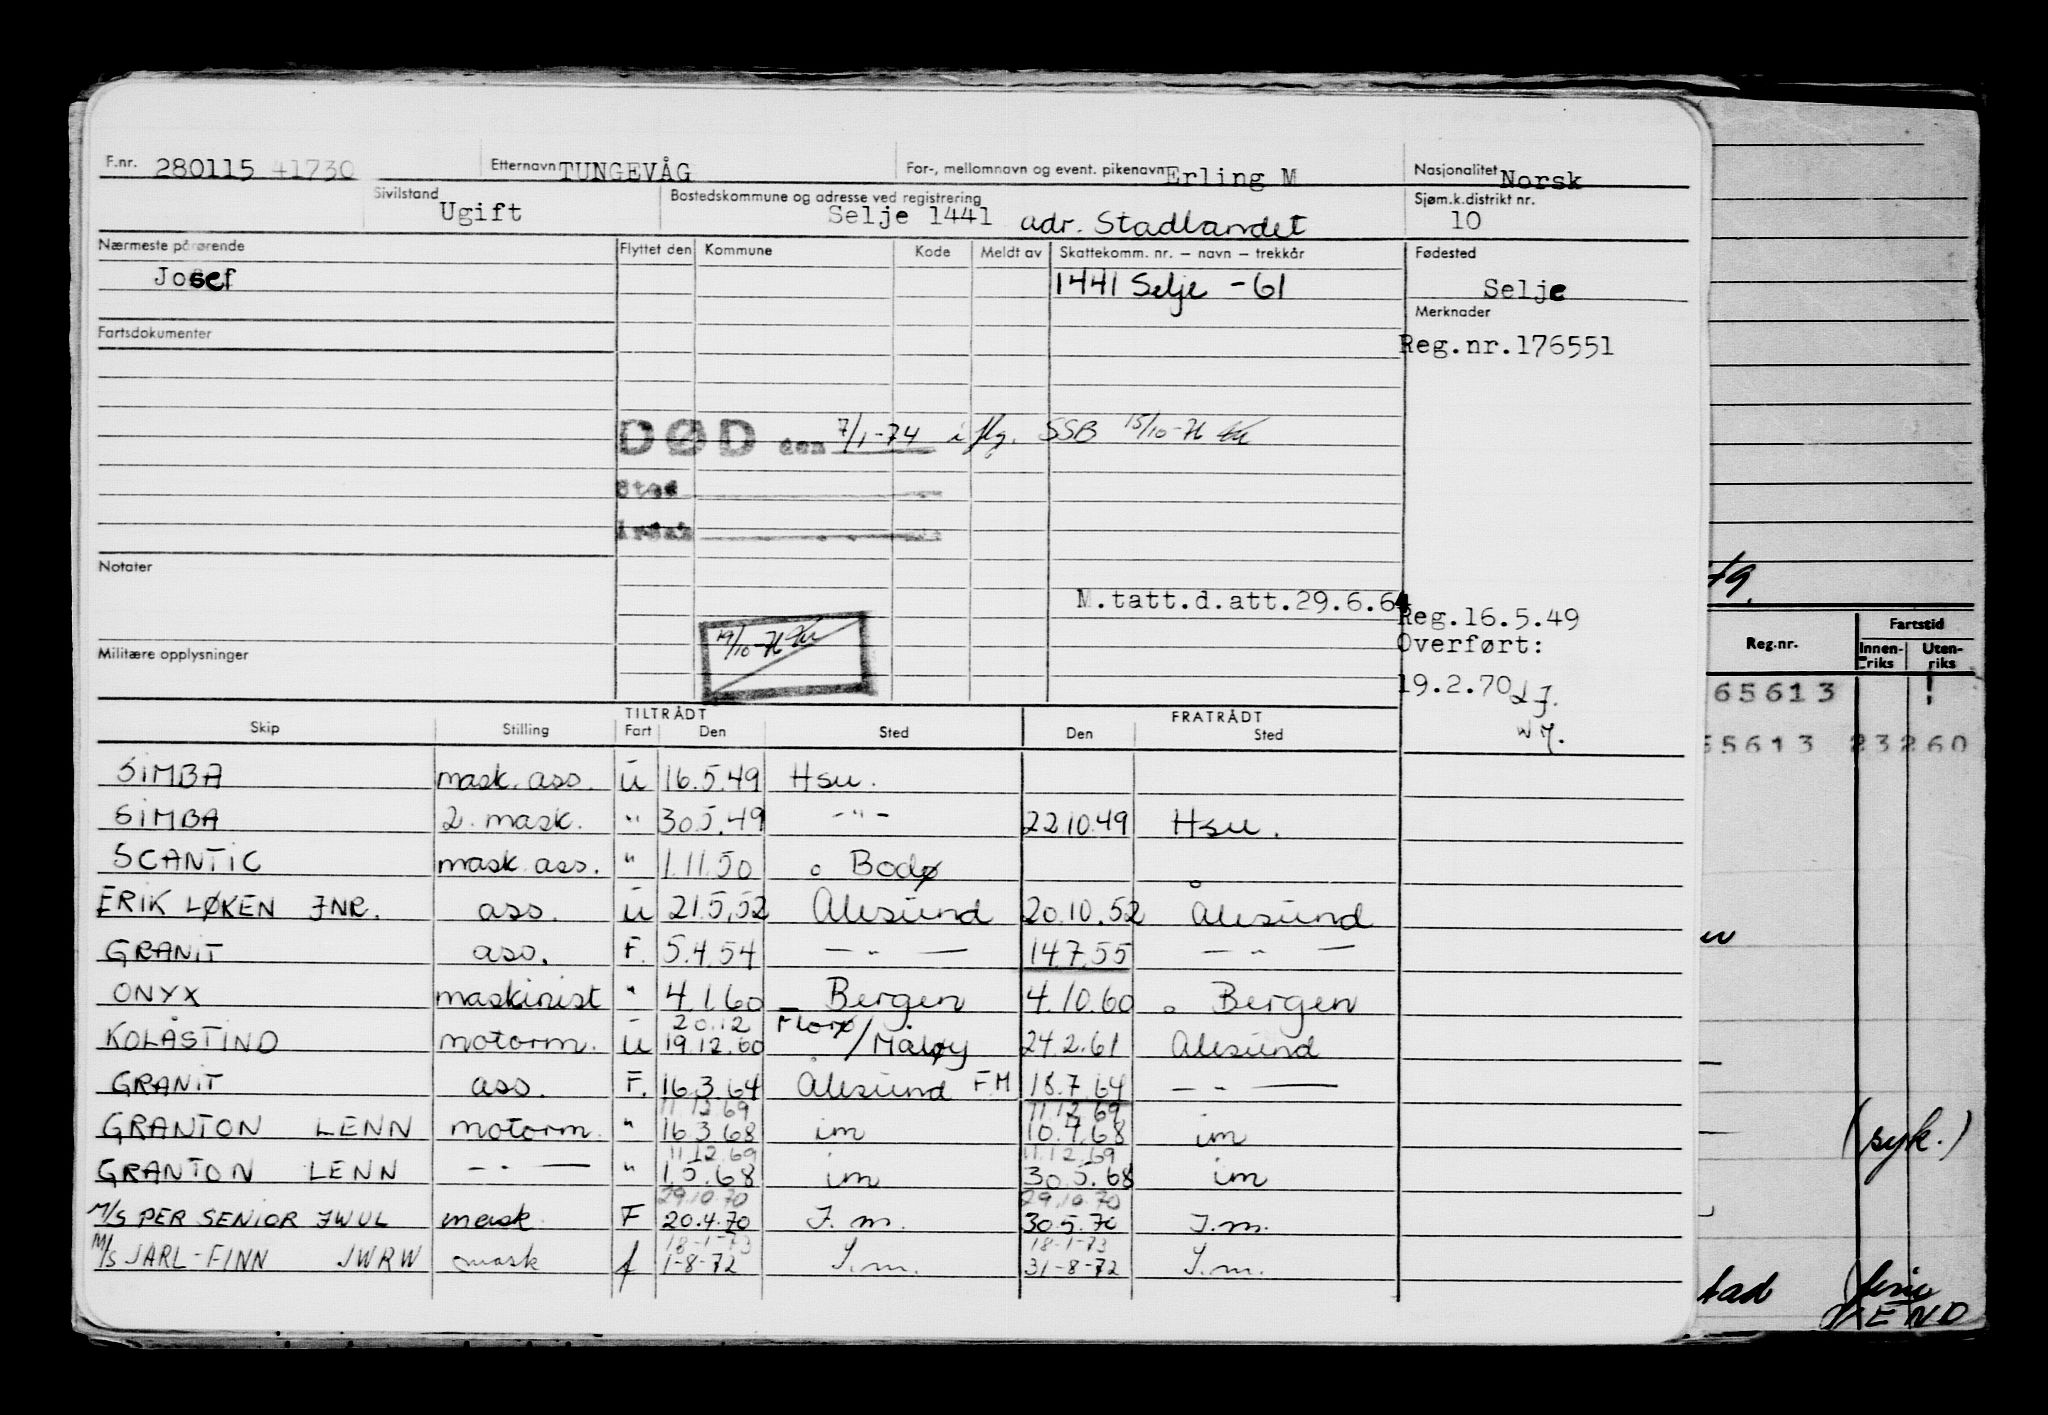 F.nr. 280115 41730 Etternavn TUNGEVÅG For-, mellomnavn og event. pikenavn Erling M Nasjonalitet Norsk
Sivilstand Ugift Bostedskommune og adresse ved registrering Selje 1441 adr. Stadlandet Sjøm.k.distrikt nr. 10
Nærmeste pårørende Flyttet den Kommune Kode Meldt av Skattekomm. nr. – navn – trekkår Fødested
Josef 1441 Selje - 61 Selje
Fartsdokumenter Merknader
Reg.nr.176551
DØD den 7/1-74 i flg. SSB 15/10-76
Sted
Årsak
Notater
M.tatt.d.att.29.6.64 Reg.16.5.49
19/10-76 Overført:
Militære opplysninger
19.2.70
TILTRÅDT FRATRÅDT
Skip Stilling Fart Den Sted Den Sted
SIMBA mask. ass. u 16.5.49 Hsu.
SIMBA 2. mask. " 30.5.49 - " - 22.10.49 Hsu.
SCANTIC mask ass. " 1.11.50 Bodø
ERIK LØKEN JNR. ass. u 21.5.52 Ålesund 20.10.52 Ålesund
GRANIT ass. F. 5.4.54 — " — 14.7.55 — " —
ONYX maskinist " 4.1.60 Bergen 4.10.60 Bergen
20.12 Florø
KOLÅSTIND motorm. u 19.12.60 /Måløy 24.2.61 Ålesund
GRANIT ass. F. 16.3.64 Ålesund FM 18.7.64 — " —
11.12.69 11.12.69
GRANTON LENN motorm. " 16.3.68 im 10.7.68 im
11.12.69 11.12.69
GRANTON LENN - " — " 1.5.68 im 30.5.68 im
29.10.70 29.10.70
M/S PER SENIOR JWUL mask F 20.4.70 I.m. 30.5.70 I.m.
18-1-73 18-1-73
M/S JARL-FINN JWRW mask f 1-8-72 I.m. 31-8-72 I.m.
Fartstid
Reg.nr. Innen-riks Uten-riks
65613
65613 23260
(syk.)